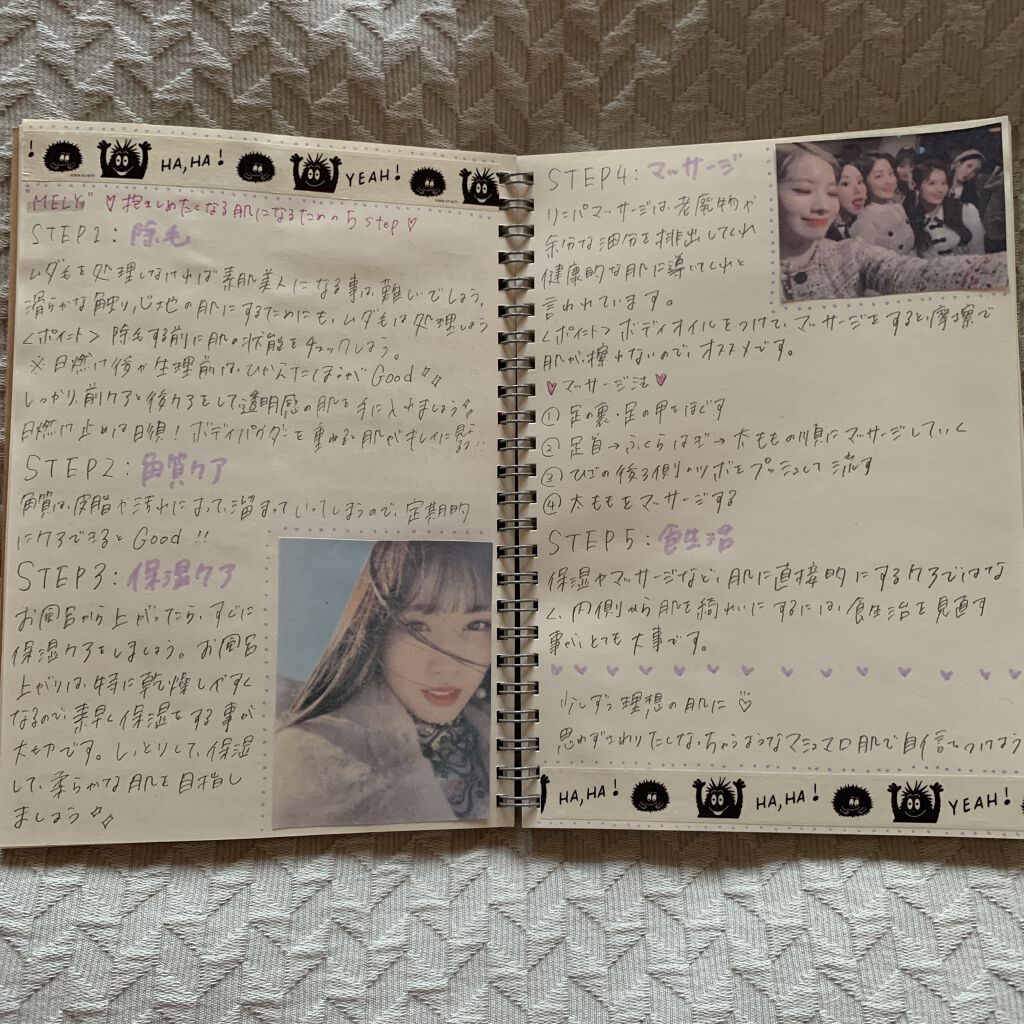 HA, HA! YEAH!
"MELY" ♡抱きしめたくなる肌になるための5step♡
STEP1:除毛
ムダ毛を処理しなければ素肌美人になる事は難しいでしょう。
滑らかな触り心地の肌にするためにも、ムダ毛は処理しよう
<ポイント> 除毛する前に肌の状態をチェックしよう。
※日燃け後や生理前は、ひかえたほうがGood
しっかり前ケアと後ケアをして透明感の肌を手に入れましょう
日燃け止めは日須!ボディパウダーを重ねると肌がキレイに見える!!
STEP2:角質ケア
角質は、皮脂や汚れによって、溜まっていってしまうので、定期的
にケアできるとGood!!
STEP3:保湿ケア
お風呂から上がったら、すぐに
保湿ケアをしましょう。お風呂
上がりは、特に乾燥しやすく
なるので、素早く保湿をする事が
大切です。しっとりして、保湿
して、柔らかな肌を目指し
ましょう
STEP4:マッサージ
リンパマッサージは、老廃物や
余分な油分を排出してくれ
健康的な肌に導いてくれると
言われています。
<ポイント>ボディオイルをつけて、マッサージをすると摩擦で
肌が擦れないので、オススメです。
♡マッサージ法♡
① 足の裏・足の甲をほぐす
② 足首→ふくらはぎ→太ももの順にマッサージしていく
③ ひざの後ろ側のツボをプッシュして流す
④ 太ももをマッサージする
STEP5:食生活
保湿やマッサージなど、肌に直接的にするケアではな
く、内側から肌を綺れいにするには、食生活を見直す
事が、とても大事です。
少しずつ理想の肌に♡
思わずさわりたしなっちゃうようなマシュマロ肌で自信をつけよう
HA, HA! HA, HA! YEAH!